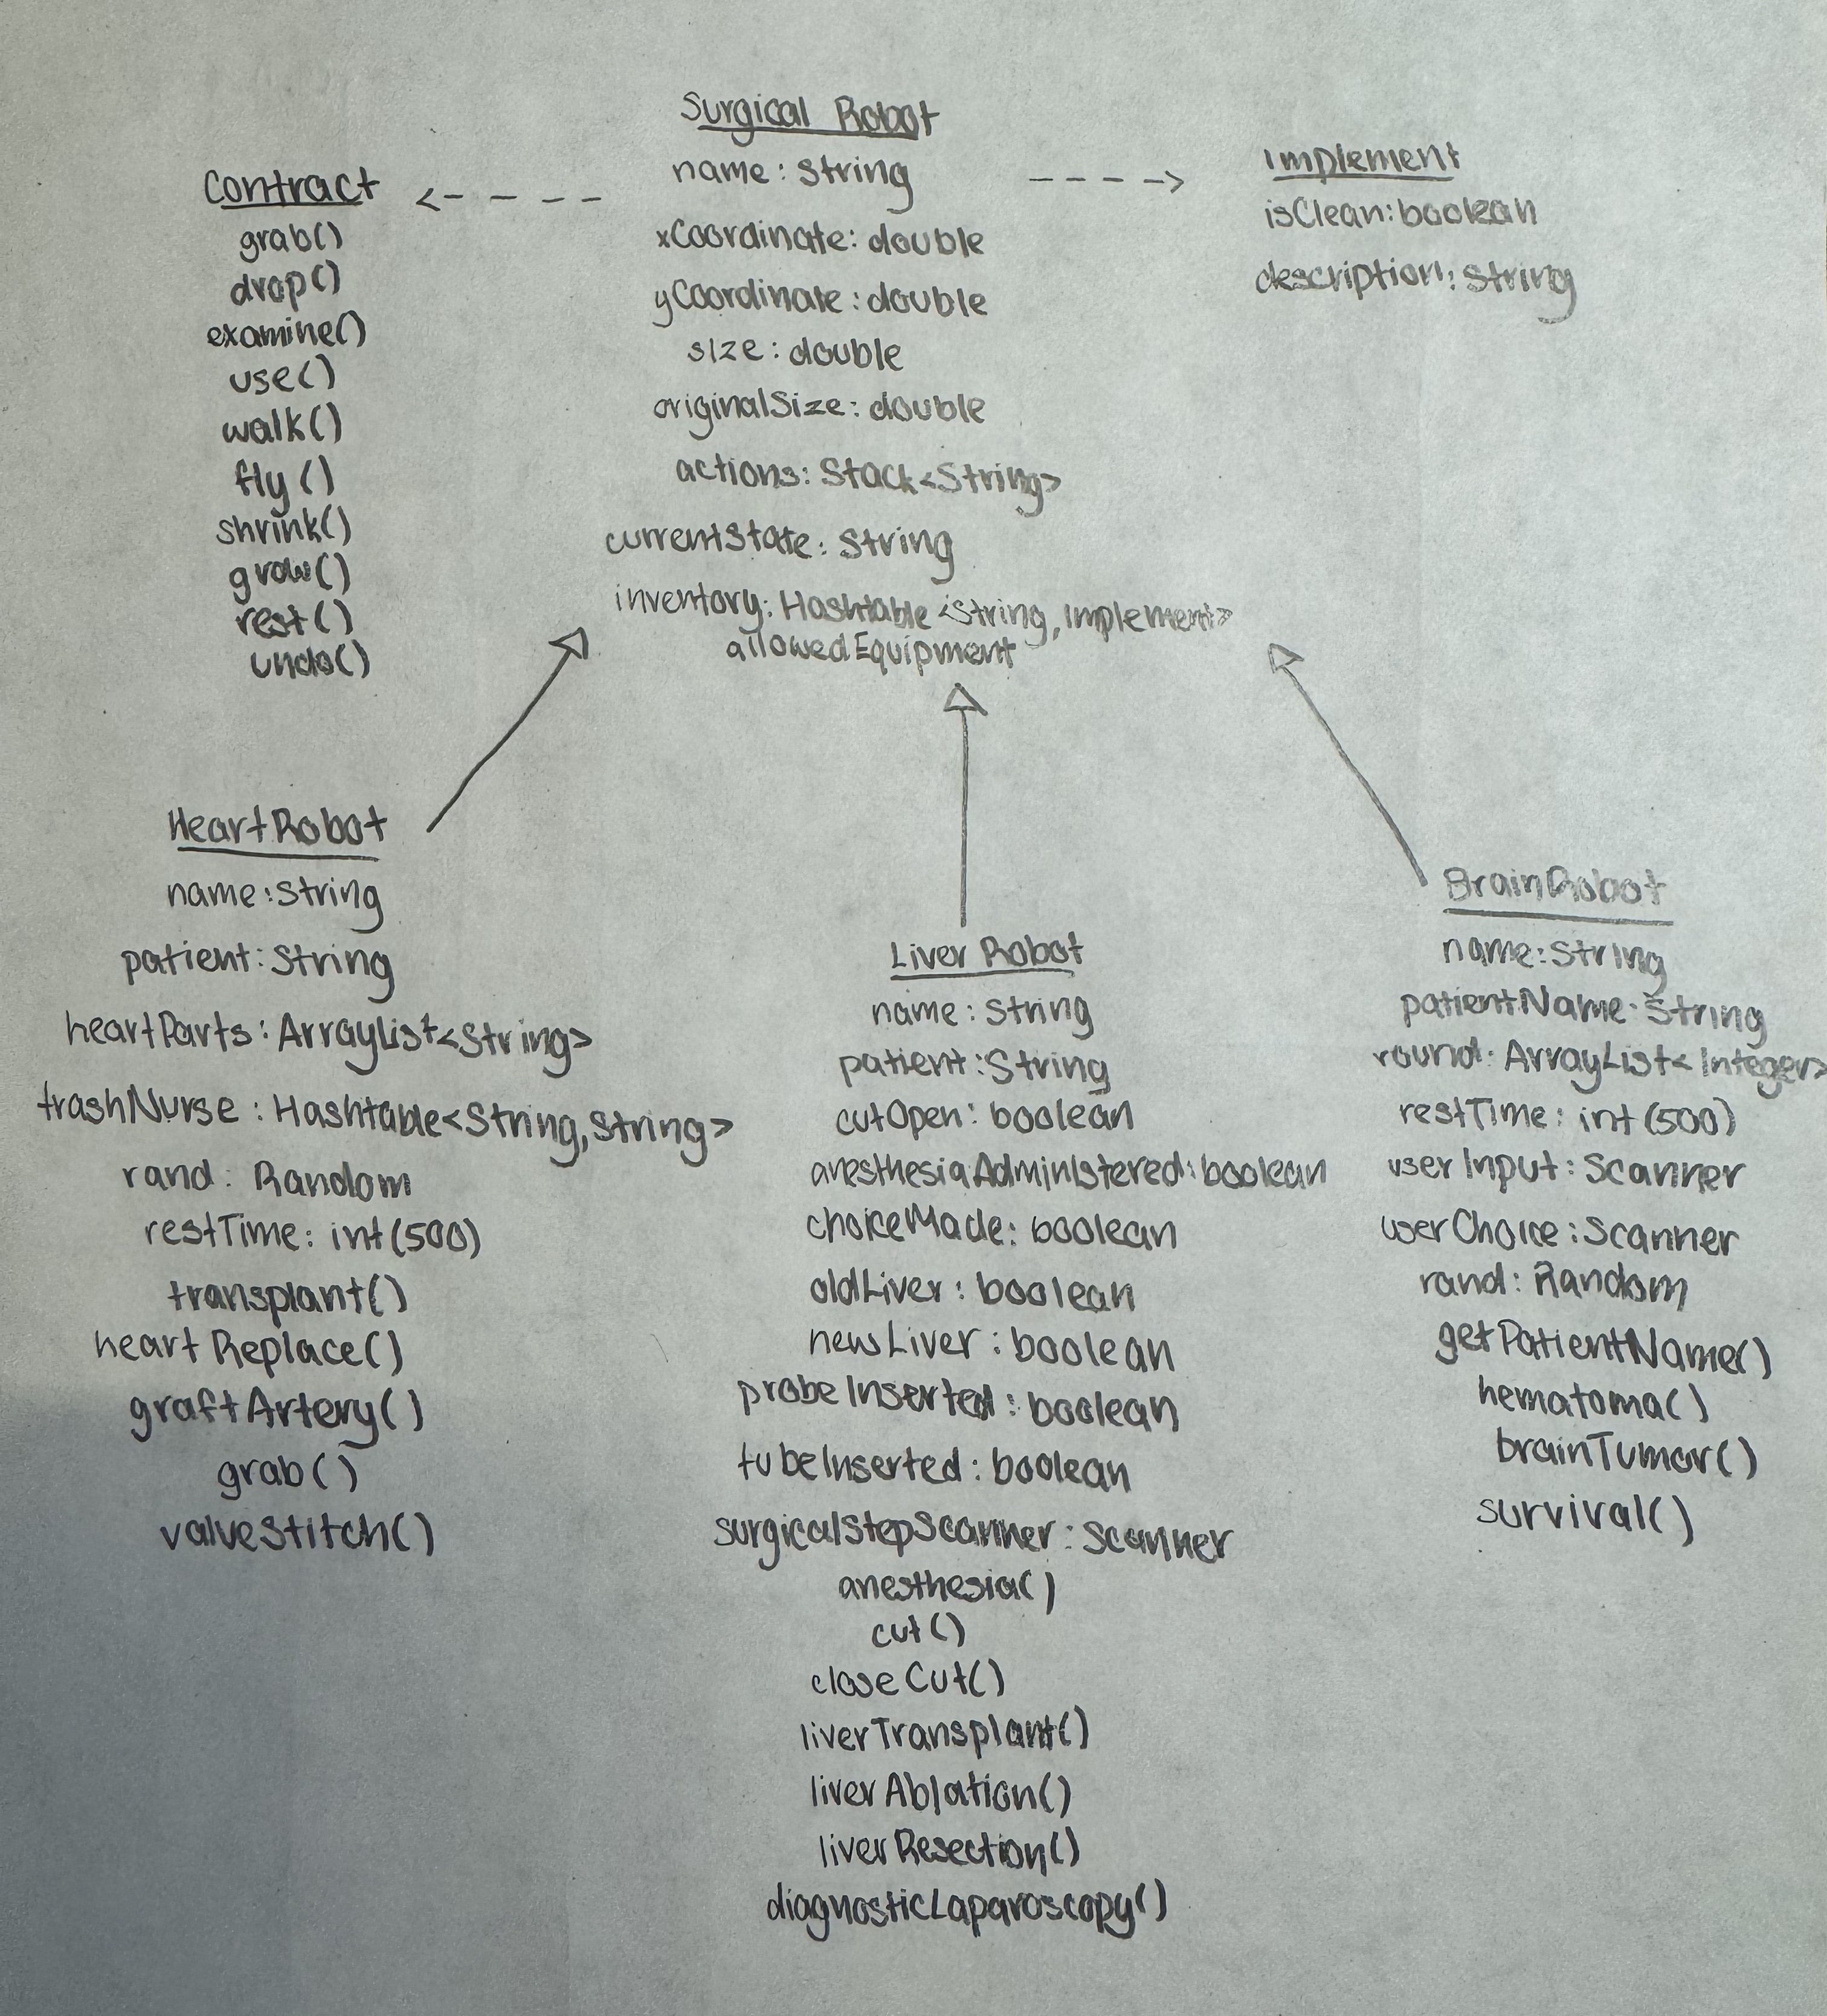 Surgical Robot
name: String
xCoordinate: double
yCoordinate: double
size: double
originalSize: double
actions: Stack<String>
currentState: String
inventory: Hashtable<String, Implement>
allowedEquipment
Contract
grab()
drop()
examine()
use()
walk()
fly()
shrink()
grow()
rest()
undo()
Implement
isClean: boolean
description: String
HeartRobot
name: String
patient: String
heartParts: ArrayList<String>
trashNurse: Hashtable<String, String>
rand: Random
restTime: int(500)
transplant()
heartReplace()
graftArtery()
grab()
valveStitch()
Liver Robot
name: String
patient: String
cutOpen: boolean
anesthesiaAdministered: boolean
choiceMade: boolean
oldLiver: boolean
newLiver: boolean
probeInserted: boolean
tubeInserted: boolean
surgicalStepScanner: Scanner
anesthesia()
cut()
closeCut()
liverTransplant()
liverAblation()
liverResection()
diagnosticLaparoscopy()
BrainRobot
name: String
patientName: String
round: ArrayList<Integer>
restTime: int(500)
userInput: Scanner
userChoice: Scanner
rand: Random
getPatientName()
hematoma()
brainTumor()
survival()